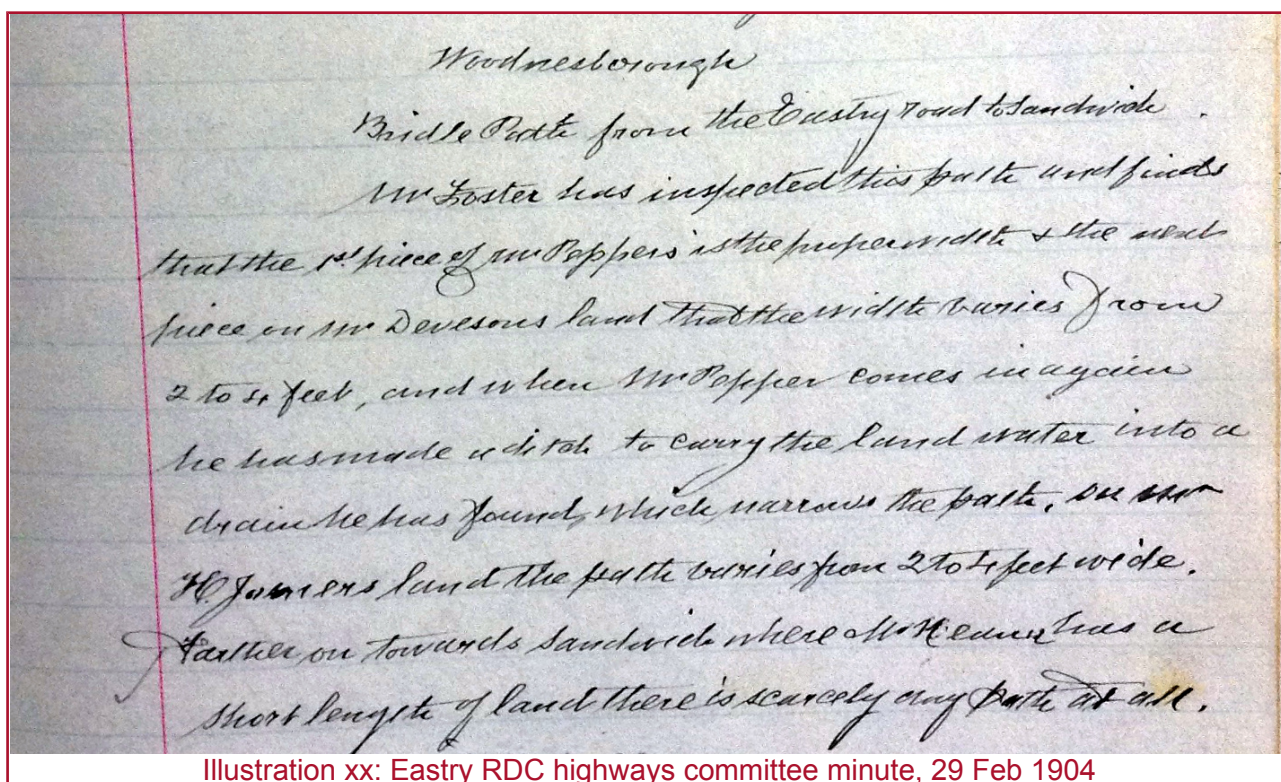 Woodnesborough
Bridle Path from the Eastry road to Sandwich.
Mr Foster has inspected this path and finds
that the 1st piece of Mr Peppers is the proper width & the next
piece on Mr Devesons land that the width varies from
2 to 4 feet, and when Mr Pepper comes in again
he has made a ditch to carry the land water into a
drain he has found, which narrows the path. On Mr
H. land the path varies from 2 to 4 feet wide.
Farther on towards Sandwich where Mr has a
short length of land there is scarcely any path at all.
Illustration xx: Eastry RDC highways committee minute, 29 Feb 1904